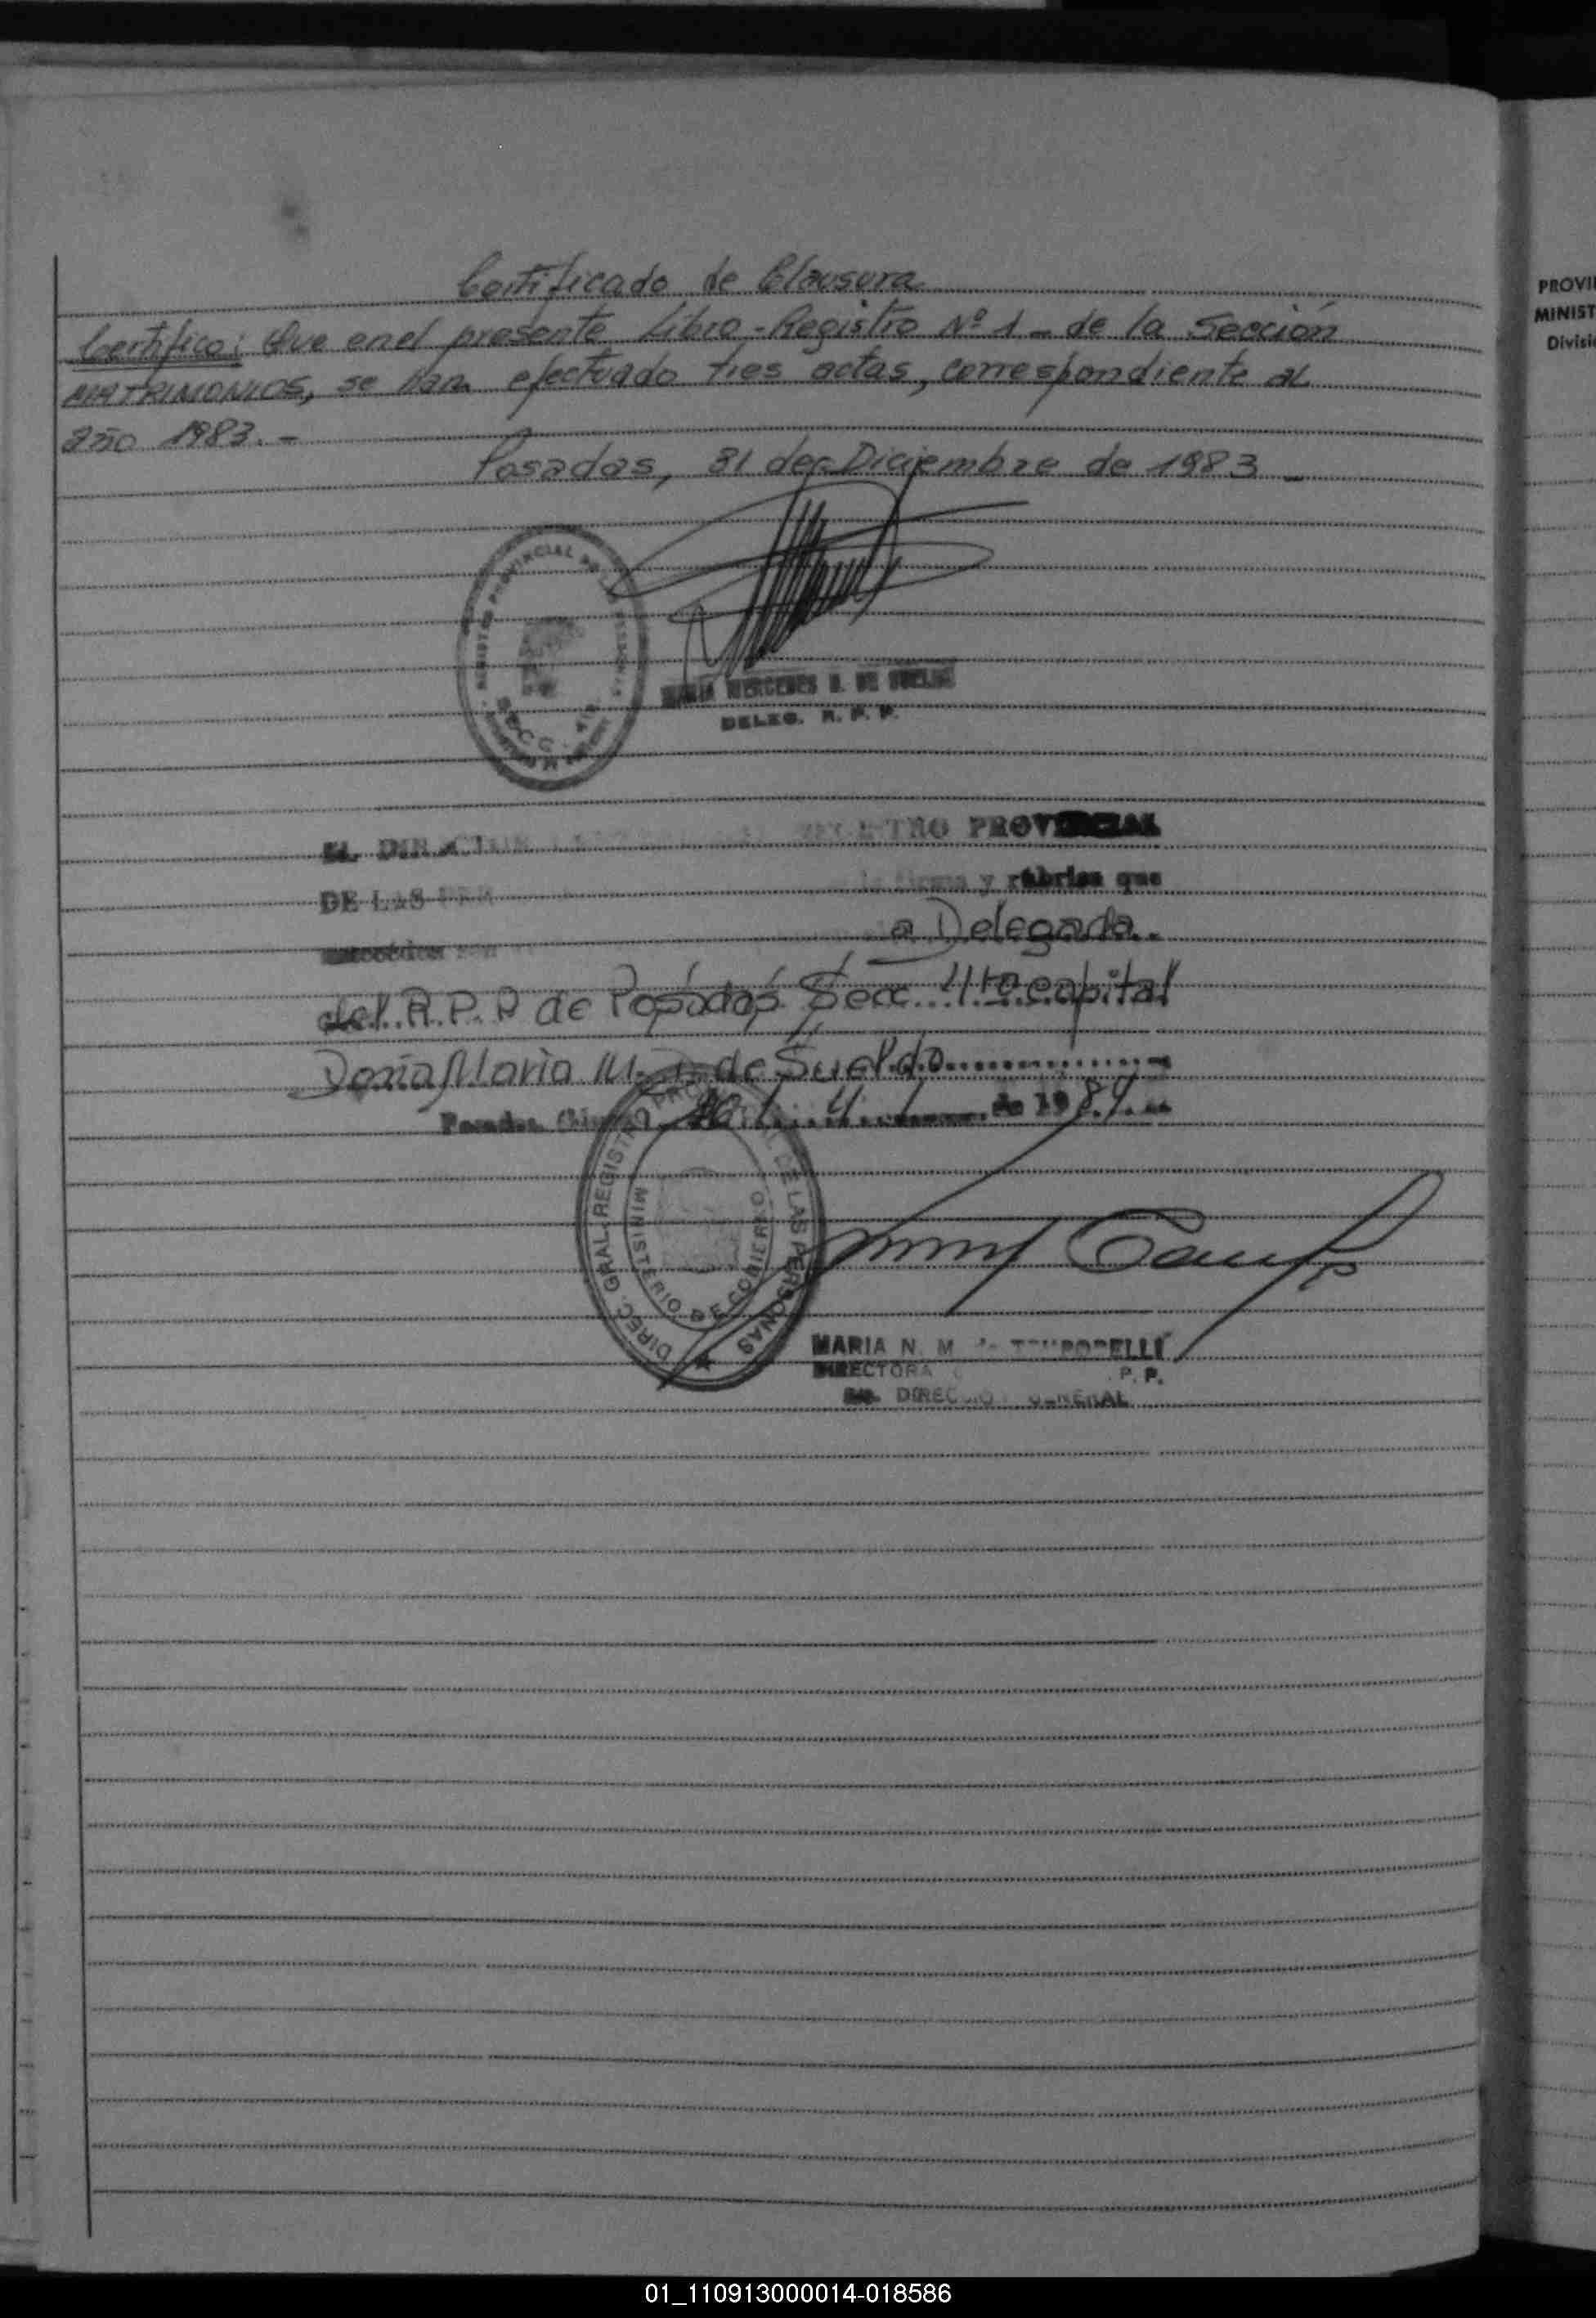 Certificado de Clausura
Certifico: Que en el presente Libro-Registro Nº 1 - de la Sección
MATRIMONIOS, se han efectuado tres actas, correspondiente al
año 1983. -
Posadas, 31 de Diciembre de 1983 -
REGISTRO PROVINCIAL DE LAS PERSONAS
SECC.
MARIA MERCEDES DE
DELEG. R. P. P.
EL DIRECTOR REGISTRO PROVINCIAL
DE LAS la firma y rúbrica que
antecéden son a Delegada.
del R.P.P de Posadas Secc. 4ta Capital
Doña Maria M. de Sueldo
Posadas, 4 de 1984
DIREC. GRAL. REGISTRO PROVINCIAL DE LAS PERSONAS
MINISTERIO DE GOBIERNO
MARIA N. M
DIRECTORA P. P.
DIRECCION GENERAL
PROVI
MINIST
Divisi
01_110913000014-018586